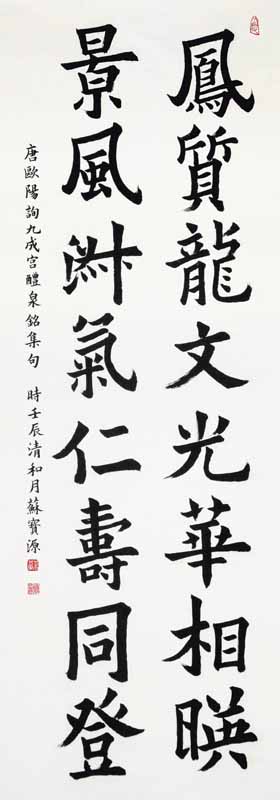 鳳質龍文光華相暎
景風淑氣仁壽同登
唐歐陽詢九成宫醴泉銘集句 時壬辰清和月蘇寶源